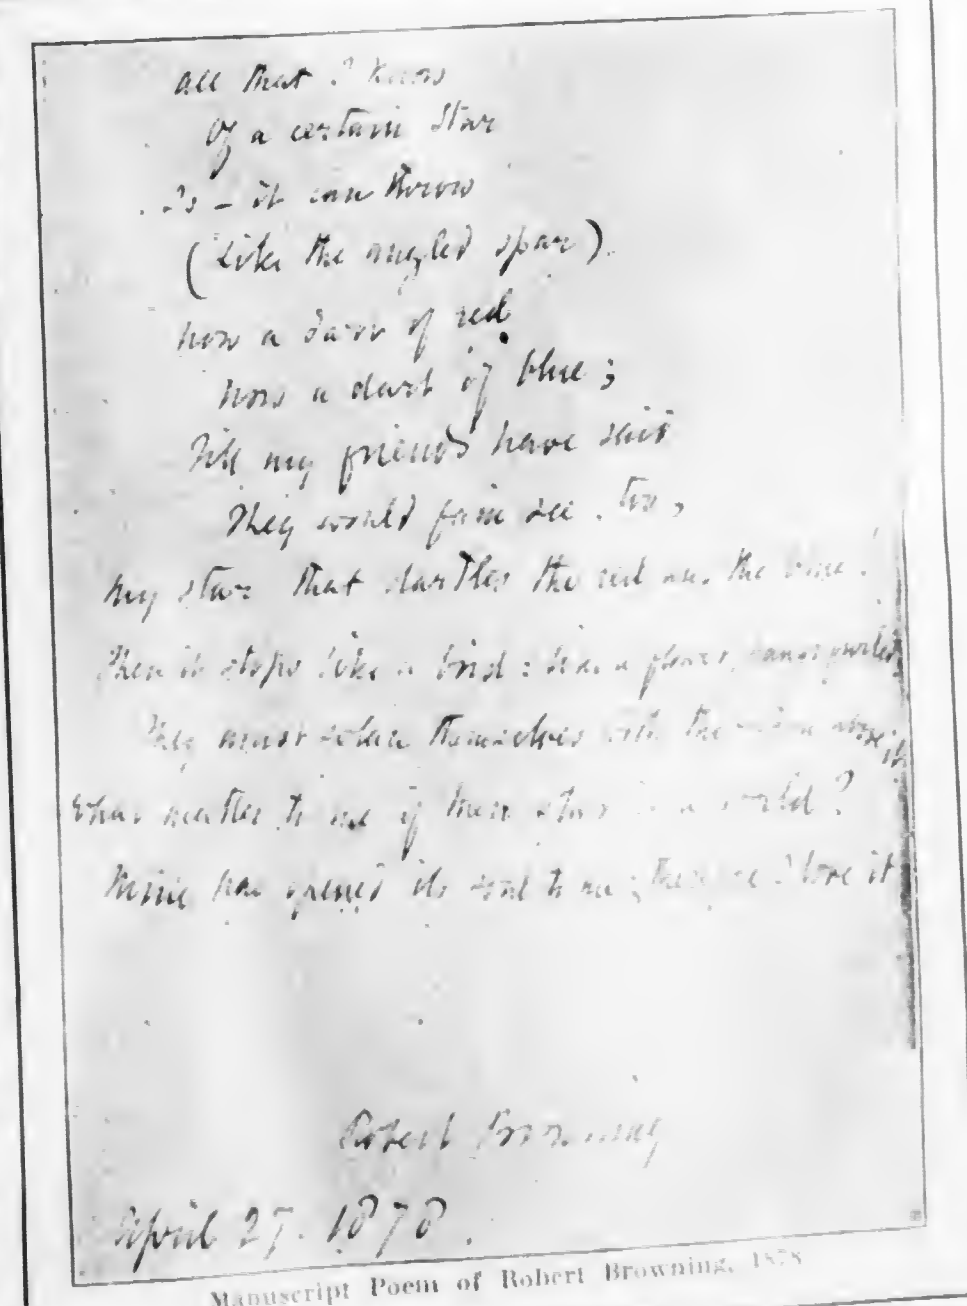 All that I know
Of a certain star
Is – it can throw
(Like the angled spar)
Now a dart of red
Now a dart of blue;
Till my friends have said
They would fain see, too,
My star that dartles the red and the blue!
Then it stops like a bird: like a flower, hangs furled,
They must solace themselves with the Saturn above it
What matter to me if their star is a world?
Mine has opened its soul to me; therefore I love it
Robert Browning
April 27. 1878.
Manuscript Poem of Robert Browning, 1878